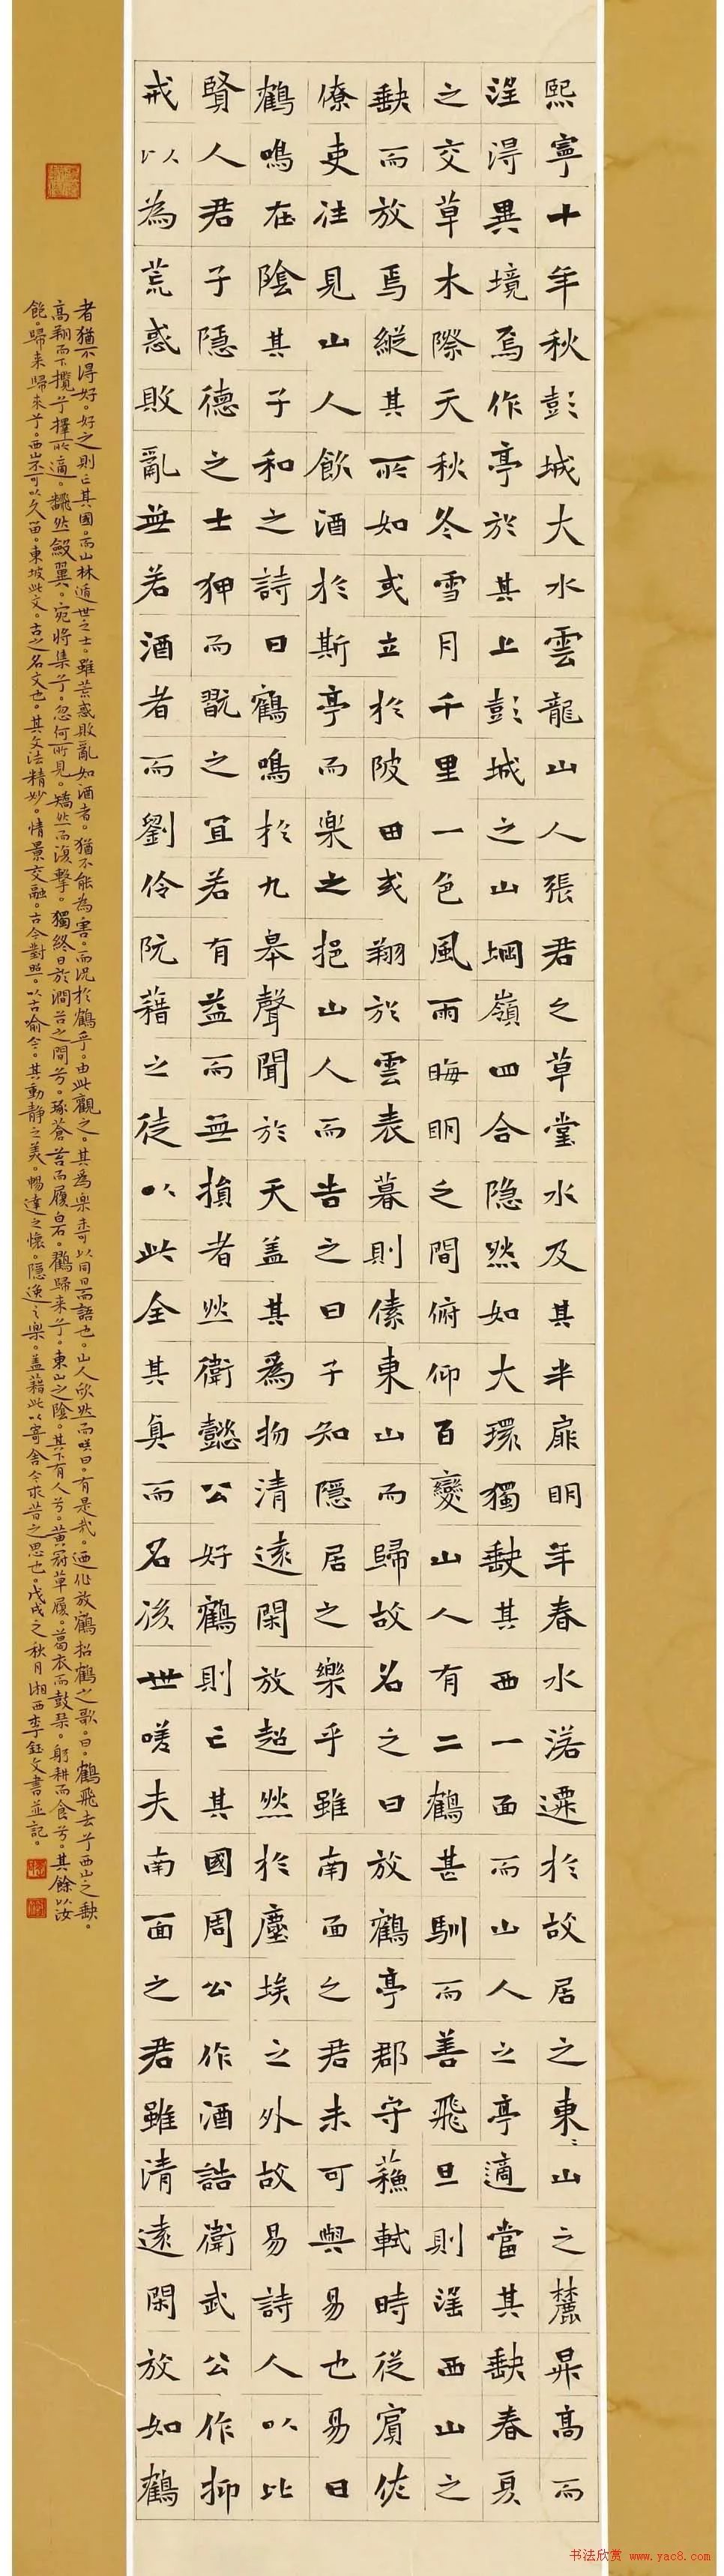 熙寧十年秋彭城大水雲龍山人張君之草堂水及其半扉明年春水落遷於故居之東〻山之麓昇高而
望得異境焉作亭於其上彭城之山堈嶺四合隐然如大環獨缺其西一面而山人之亭適當其缺春夏
之交草木際天秋冬雪月千里一色風雨晦明之間俯仰百變山人有二鶴甚馴而善飛旦則望西山之
缺而放焉縱其所如或立於陂田或翔於雲表暮則傃東山而歸故名之曰放鶴亭郡守蘇軾時從賓佐
僚吏往見山人飲酒於斯亭而樂之挹山人而告之曰子知隱居之樂乎雖南面之君未可與易也易曰
鶴鳴在陰其子和之詩曰鶴鳴於九皋聲聞於天蓋其為物清遠閑放超然於塵埃之外故易詩人以比
賢人君子隱德之士狎而翫之宜若有益而無損者然衛懿公好鶴則亡其國周公作酒誥衛武公作抑
戒以為荒惑敗亂無若酒者而劉伶阮藉之徒以此全其真而名後世嗟夫南面之君雖清遠閑放如鶴
者猶不得好。好之則亡其國。而山林遁世之士。雖荒惑敗亂如酒者。猶不能為害。而況於鶴乎。由此觀之。其為樂未可以同日而語也。山人欣然而咲曰。有是哉。迺作放鶴招鶴之歌。曰。鶴飛去兮西山之缺。
高翔而下攬兮擇所適。飜然斂翼。宛將集兮。忽何所見。矯然而復擊。獨終日於澗谷之間兮。琢蒼苔而履白石。鶴歸来兮。東山之陰。其下有人兮。黄冠草履。葛衣而鼓琴。躬耕而食兮。其餘以汝
飽。歸来歸来兮。西山不可以久畱。東坡此文。古之名文也。其文法精妙。情景交融。古今對照。以古喻今。其動静之美。暢達之懷。隱逸之樂。盖藉此以寄舍今求昔之思也。戊戌之秋月湘西李鈺文書並記。
书法欣赏 www.yac8.com